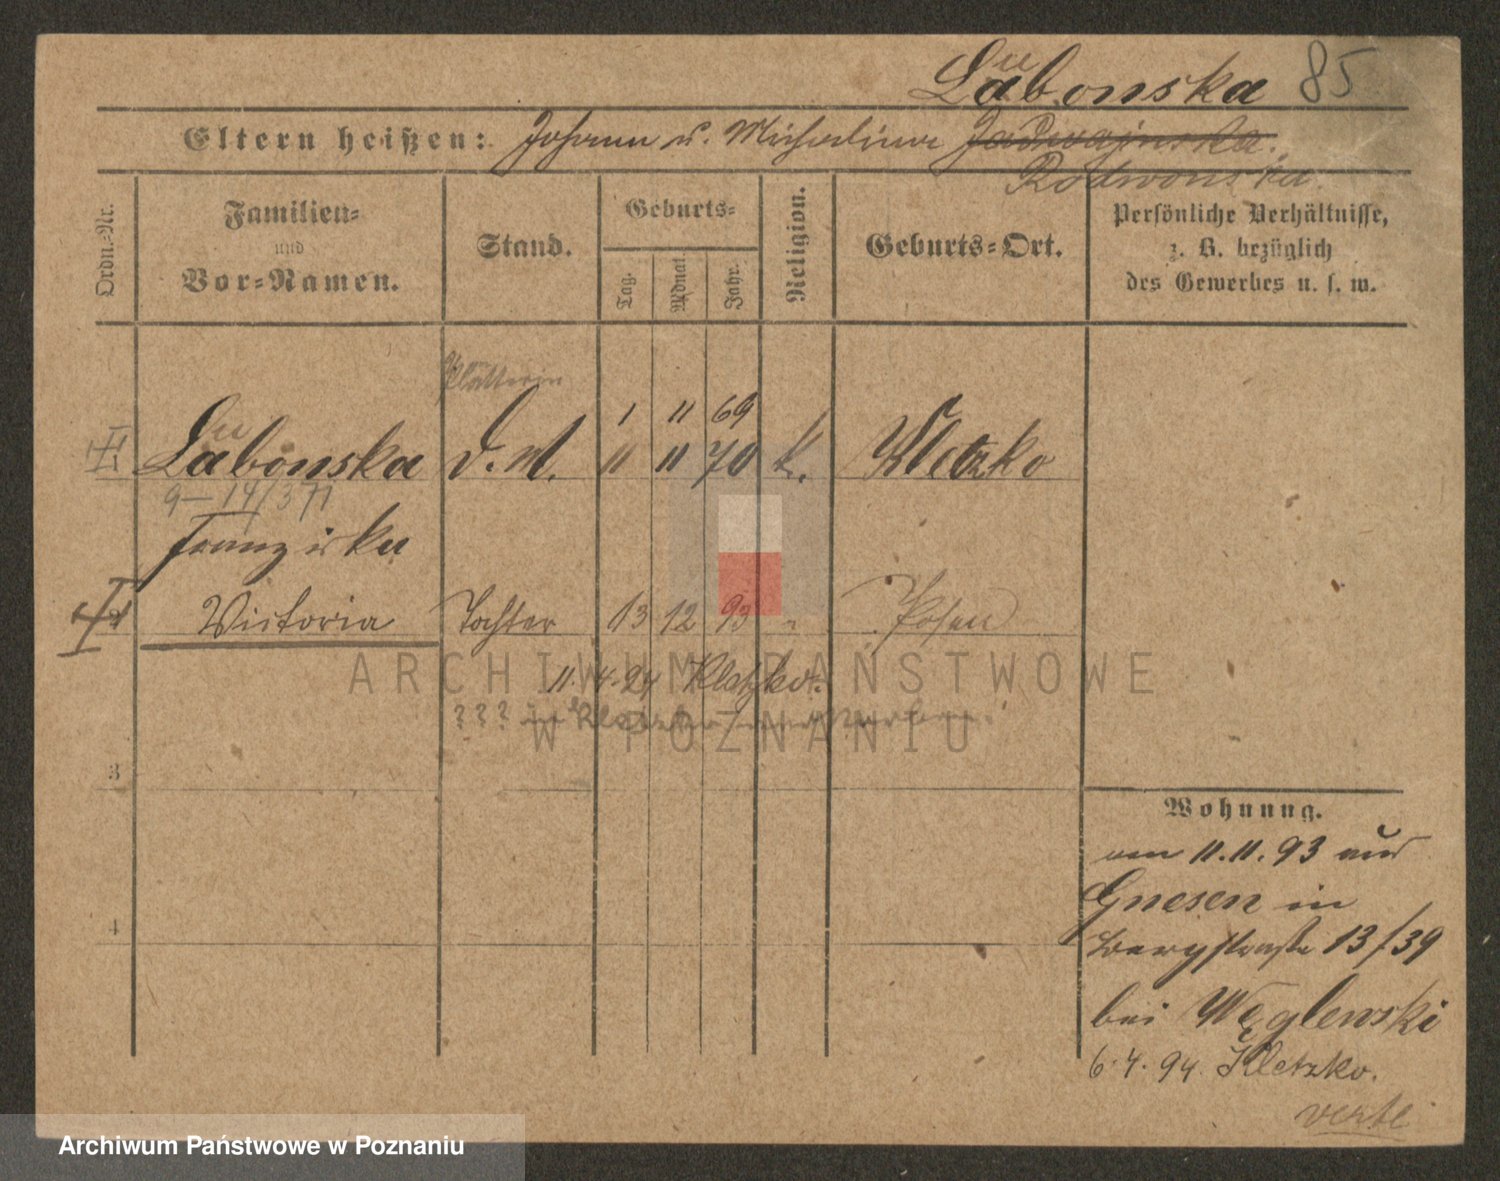 Labonska 85
Eltern heißen: Johann u. Michalina Jadwajnska.
Rodwonska.
Ordn.-Nr.
Familien-
und
Vor-Namen.
Stand.
Geburts-
Tag.
Monat.
Jahr.
Religion.
Geburts-Ort.
Persönliche Verhältnisse,
z. B. bezüglich
des Gewerbes u. s. w.
Plätterin
1 11 69
Labonska D. M. 11 11 70 k. Kletzko
9-14/3 71
Franziska
Victoria Tochter 13 12 93 " Posen
11. 4. 94 Kletzko.
? ? ? in Kletzko
3
4
Wohnung.
am 11.11.93 aus
Gnesen in
Bergstraße 13/39
bei Węglewski
6.4.94. Kletzko.
verte
ARCHIWUM PAŃSTWOWE
W POZNANIU
Archiwum Państwowe w Poznaniu